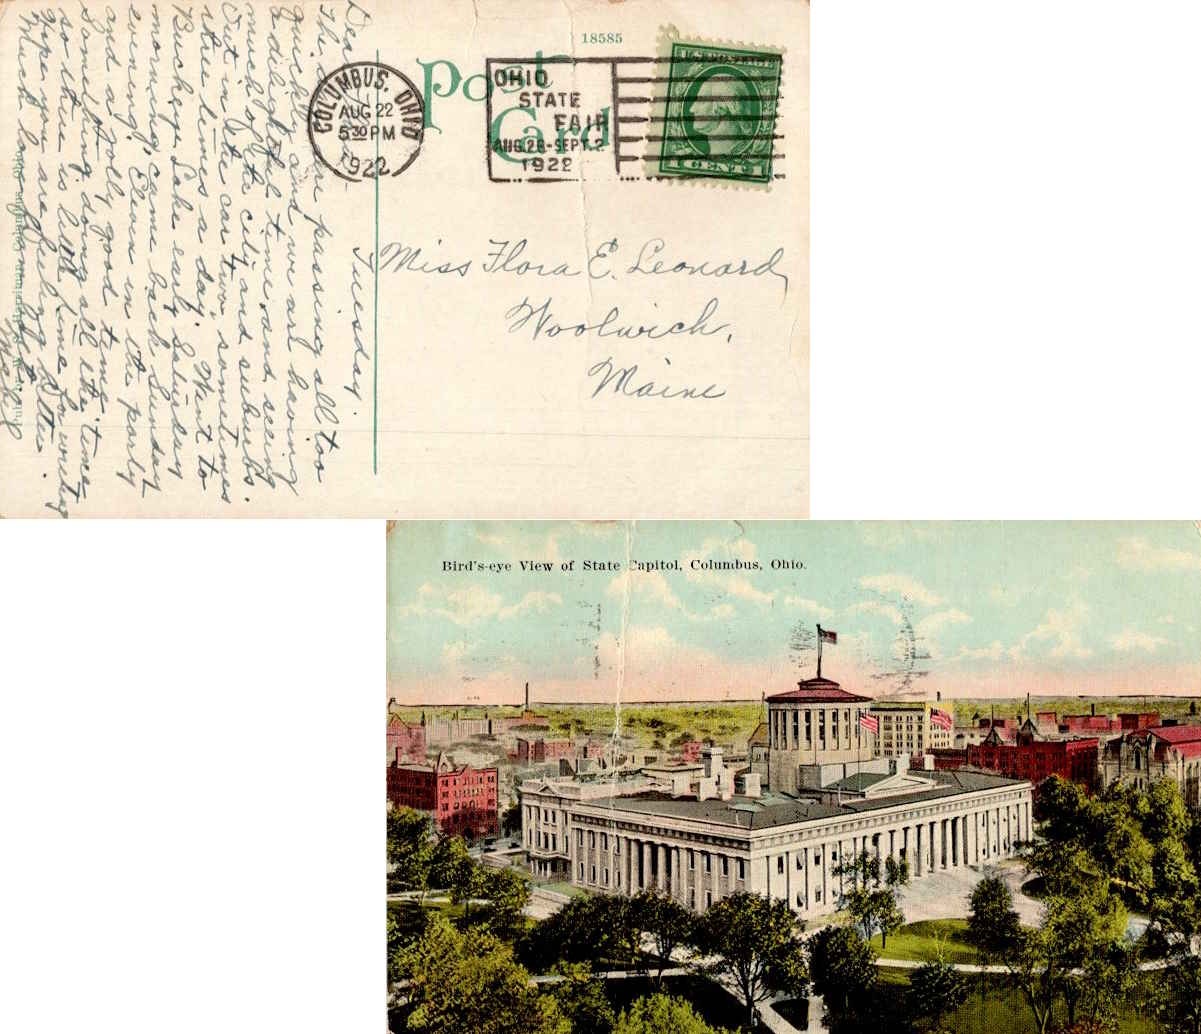 18585
Post
Card
COLUMBUS, OHIO
AUG 22
5 30 PM
1922
OHIO
STATE
FAIR
AUG. 28 - SEPT. 2
1922
1 CENT 1
Miss Flora E. Leonard,
Woolwich,
Maine
Tuesday.
Dear
The passing all too
quickly and we are having
a delightful time and seeing
much of the city and suburbs.
Out in the car two, sometimes
three times a day. Went to
Buckeye Lake early Saturday
morning, came back Sunday
evening. Eleven in the party
and a jolly good time.
Something doing all the time
so there is little time for writing
Hope you are feeling better.
Much love from
Bird's-eye View of State Capitol, Columbus, Ohio.